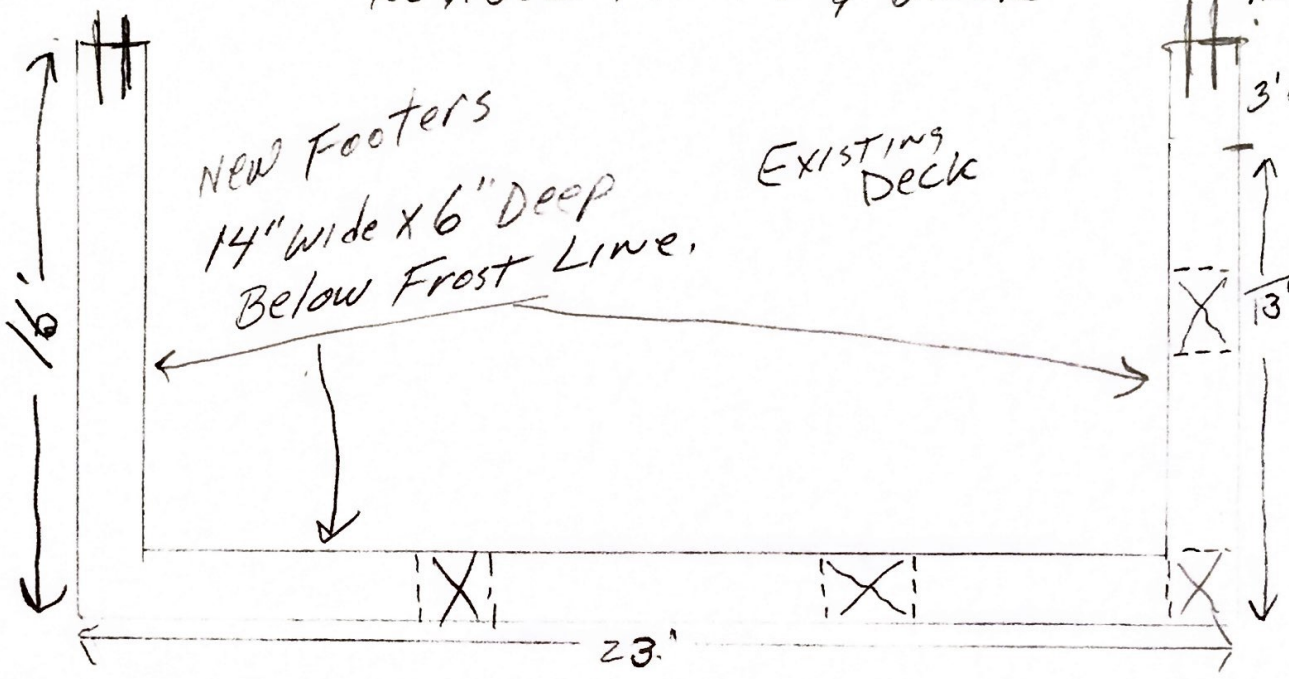 New Footers
14" wide x 6" Deep
Below Frost Line.
Existing
Deck
16'
3'
13'
23.'